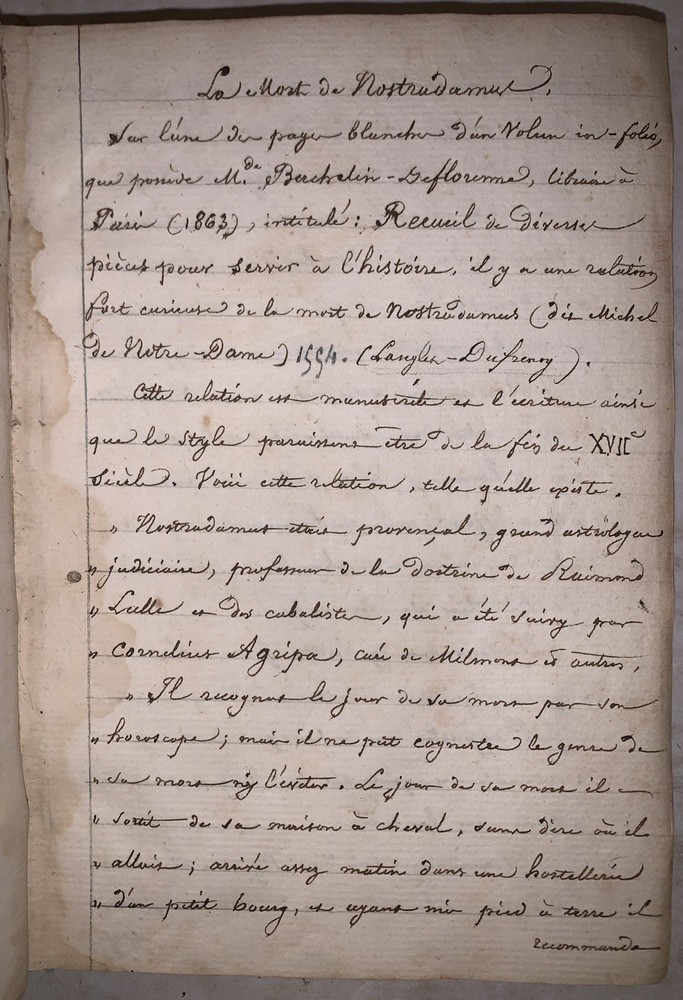 La Mort de Nostradamus.
Sur l'une des pages blanches d'un Volum in-folio,
que possède M.de Bachelin-Deflorenne, libraire à
Paris (1863), intitulé: Recueil de diverses
pièces pour servir à l'histoire, il y a une relation
fort curieuse de la mort de Nostradamus (dit Michel
de Notre-Dame) 1554. (Langlet-Dufrenoy).
Cette relation est manuscrite et l'écriture ainsi
que le style paraissent être de la fin du XVIIe
siècle. Voici cette relation, telle qu'elle existe.
" Nostradamus était provençal, grand astrologue
" judiciaire, professeur de la doctrine de Raimond
" Lulle et des cabalistes, qui a été suivy par
" Cornelius Agripa, curé de Milmons et autres.
" Il recognut le jour de sa mort par son
" horoscope; mais il ne put cognestre le genre de
" sa mort ny l'éviter. Le jour de sa mort il
" sortit de sa maison à cheval, sans dire où il
" alloit; arrivé assez matin dans une hostellerie
" d'un petit bourg, et ayant mis pied à terre il
recommanda